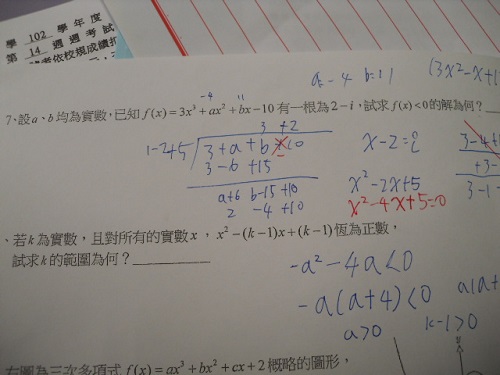 學 102 學年度
第 14 週週考試
a=-4 b=11
(3x²-x+1
-4 11
7、設a、b均為實數,已知f(x)=3x³+ax²+bx-10有一根為2-i,試求f(x)<0的解為何?
3 +2
1-2+5
3+a+b+10
3-6+15
a+6 b-15 +10
2 -4 +10
x-2=i
x²-2x+5
x²-4x+5=0
3-4+
+3-
3-1
、若k為實數,且對所有的實數x,x²-(k-1)x+(k-1)恆為正數,
試求k的範圍為何?
-a²-4a<0
-a(a+4)<0
a(a+
a>0 k-1>0
右圖為三次多項式f(x)=ax³+bx²+cx+2概略的圖形,
y